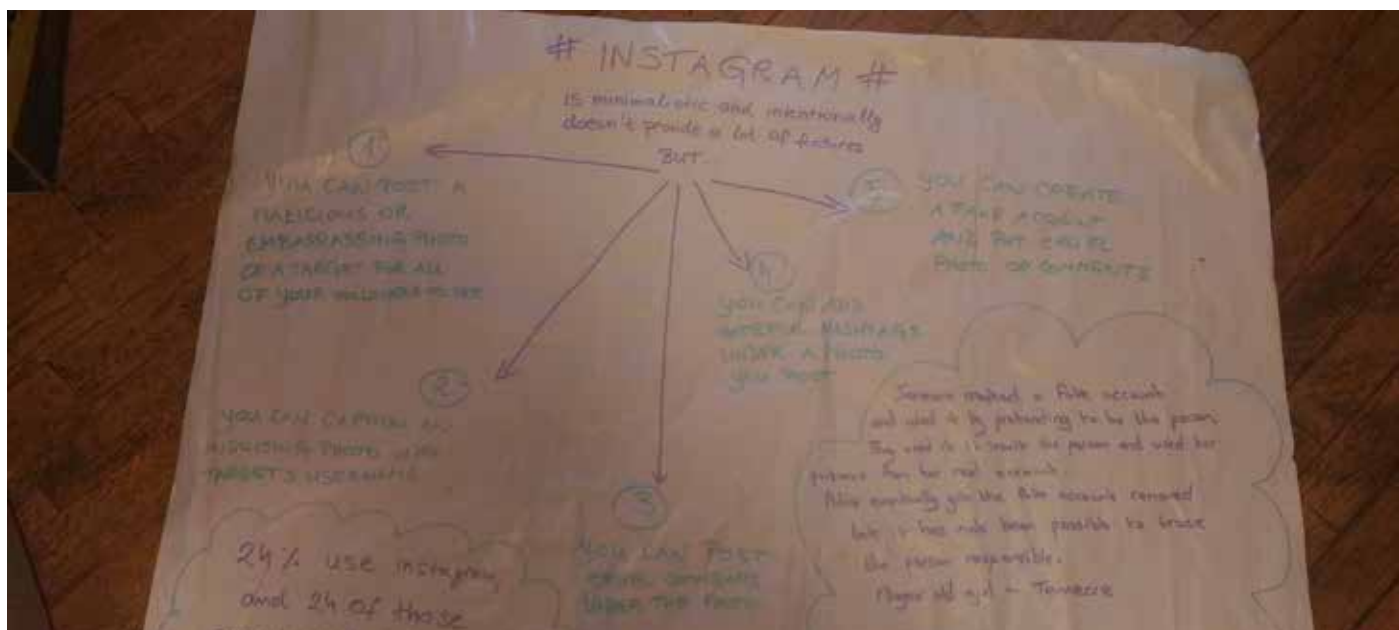 # INSTAGRAM #
IS minimalistic and intentionally
doesn't provide a lot of features
BUT...
1
YOU CAN POST A
MALICIOUS OR
EMBARASSING PHOTO
OF A TARGET FOR ALL
OF YOUR TO SEE
2
YOU CAN CAPTION AN
PHOTO WITH
TARGET'S USERNAME
3
YOU CAN POST
CRUEL COMMENTS
UNDER THE PHOTO
4
YOU CAN ADD
HASHTAGS
UNDER A PHOTO
YOU POST
5
YOU CAN CREATE
A FAKE
AND PUT CRUEL
PHOTO OR COMMENTS
24% use instagram,
and 24 of those
a fake account
and used it by pretending to be the person.
They used it to the person and used her
from her real account.
eventually got the fake account removed
but it has not been possible to trace
the person responsible.
old girl -